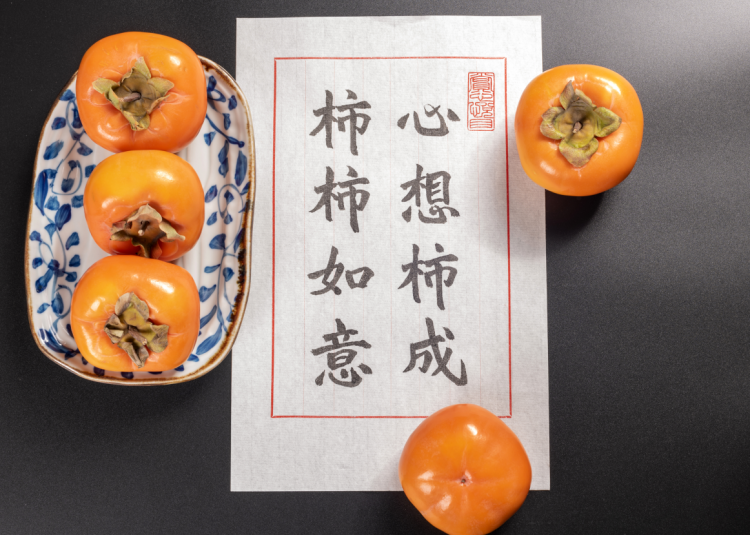 心想柿成
柿柿如意